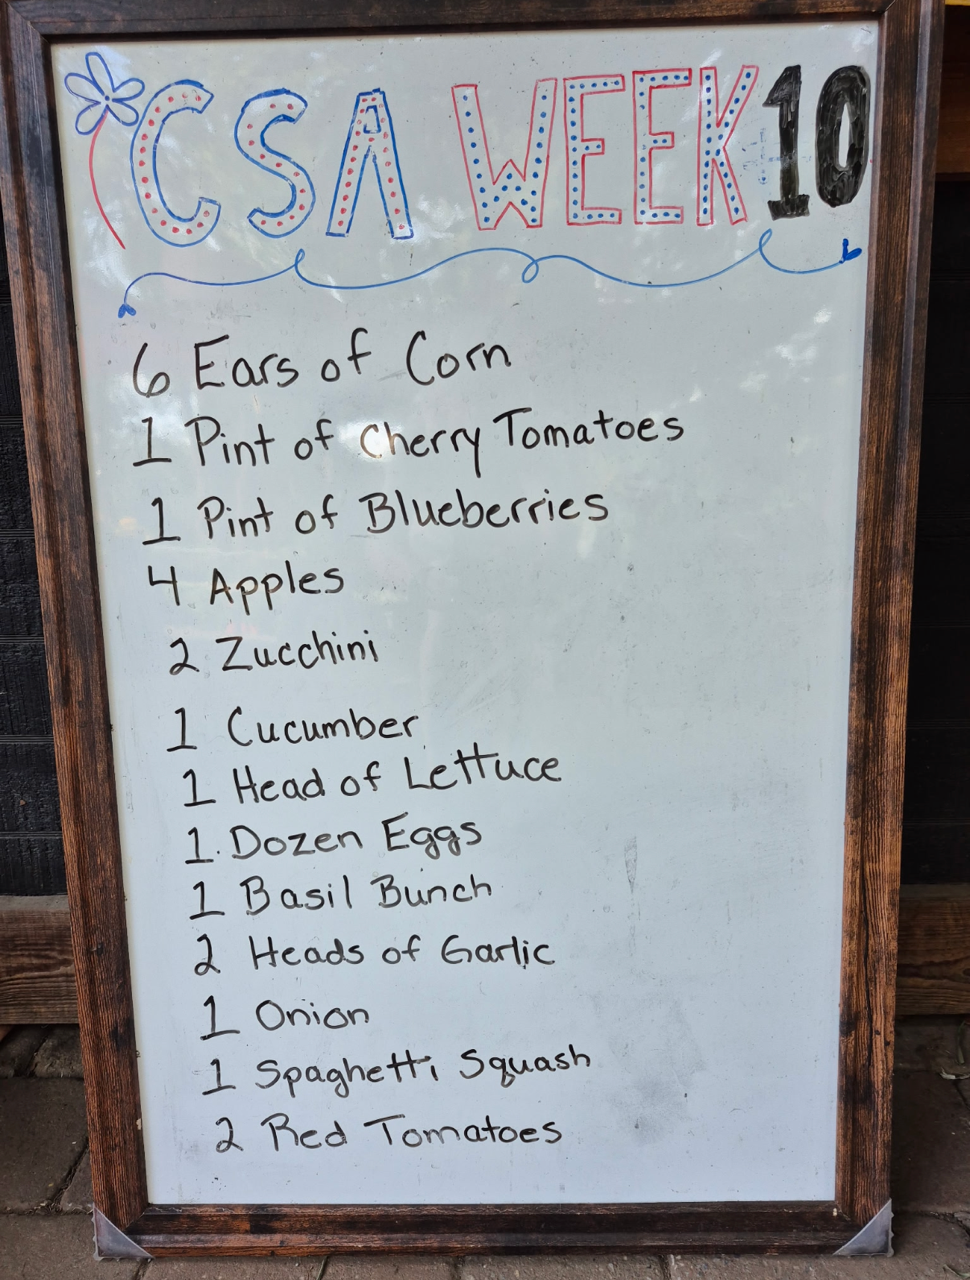 CSA WEEK 10
6 Ears of Corn
1 Pint of Cherry Tomatoes
1 Pint of Blueberries
4 Apples
2 Zucchini
1 Cucumber
1 Head of Lettuce
1. Dozen Eggs
1 Basil Bunch
2 Heads of Garlic
1 Onion
1 Spaghetti Squash
2 Red Tomatoes